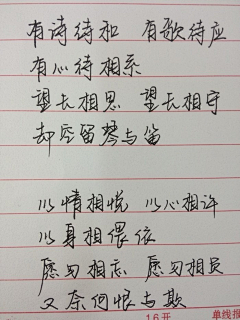 有诗待和 有歌待应
有心待相系
望长相思 望长相守
却空留琴与笛
以情相悦 以心相许
以身相偎依
愿勿相忘 愿勿相负
又奈何恨与欺
16开 单线报